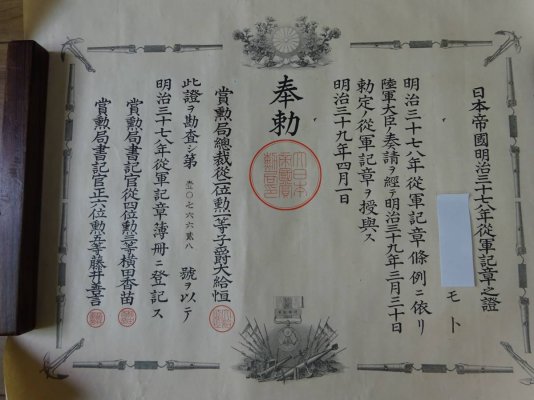 日本帝國明治三十七八年從軍記章之證
モト
明治三十七八年從軍記章條例ニ依リ
陸軍大臣ノ奏請ヲ經テ明治三十九年三月三十日
勅定ノ從軍記章ヲ授與ス
明治三十九年四月一日
奉勅
大日本帝國賞勲局印
賞勲局總裁從二位勲一等子爵大給恒
此證ヲ勘査シ第 号ヲ以テ
明治三十七八年從軍記章簿册ニ登記ス
賞勲局書記官從四位勲三等横田香苗
賞勲局書記官正六位勲五等藤井善言